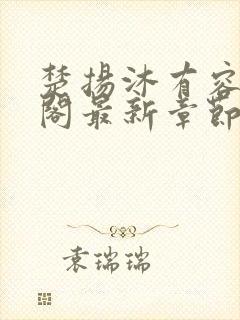 楚揚沐有容
閣最新章節
袁瑞瑞